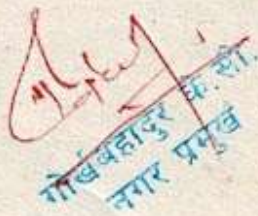 गोर्खबहादुर के.सी.
नगर प्रमुख